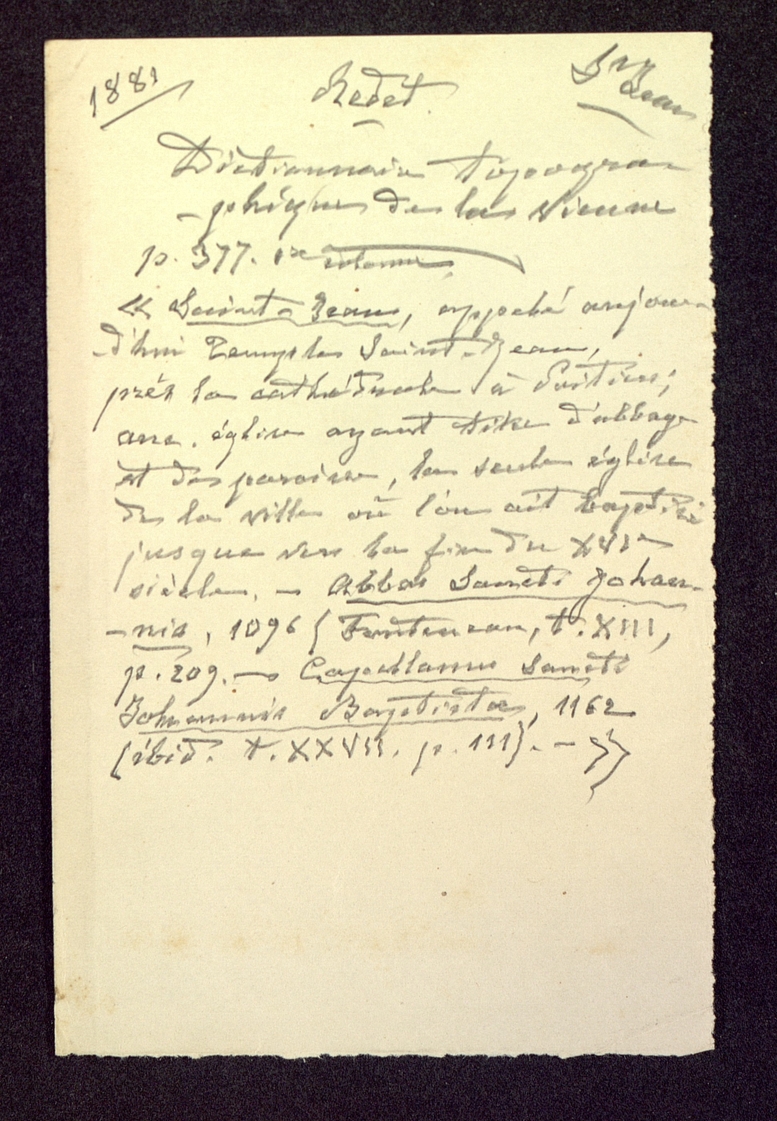 1881 Redet St Jean
Dictionnaire topogra-
-phique de la Vienne
p. 377. 1er volume
« Saint-Jean, appelé aujour-
-d'hui Temple Saint-Jean,
près la cathédrale à Poitiers;
anc. église ayant titre d'abbaye
et de paroisse, la seule église
de la ville où l'on ait baptisé
jusque vers la fin du XVIe
siècle. — Abbas Sancti Johan-
-nis, 1096 (Fonteneau, t. XIII,
p. 209. — Capellanus Sancti
Johannis Baptistæ, 1162
(ibid. t. XXVII. p. 111). — »